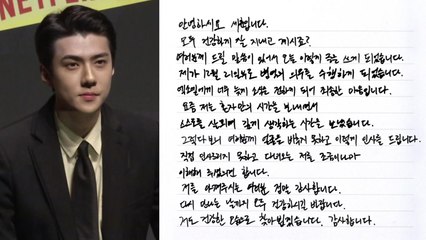 NETFLIX
안녕하세요 세훈입니다.
모두 건강하게 잘 지내고 계시죠?
여러분께 드릴 말씀이 있어서 오늘 이렇게 글을 쓰게 되었습니다.
제가 12월 21일부로 병역의 의무를 수행하게 되었습니다.
엑소엘에게 너무 늦게 소식을 전하게 되어 죄송한 마음입니다.
요즘 저는 혼자만의 시간을 보내면서
스스로를 살피며 깊게 생각하는 시간을 보냈습니다.
그렇다 보니 여러분께 얼굴을 비추지 못하고 이렇게 인사를 드립니다.
직접 인사드리지 못하고 다녀오는 저를 조금이나마
이해해 주셨으면 합니다.
저를 아껴주시는 여러분 정말 감사합니다.
다시 만나는 날까지 모두 건강하시길 바랍니다.
저도 건강한 모습으로 찾아뵙겠습니다. 감사합니다.